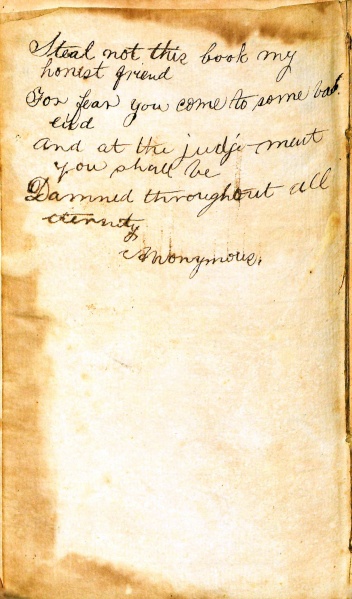 Steal not this book my
honest friend
For fear you come to some bad
end
and at the judge ment
you shall be
Damned throughout all
eternity
Anonymous.